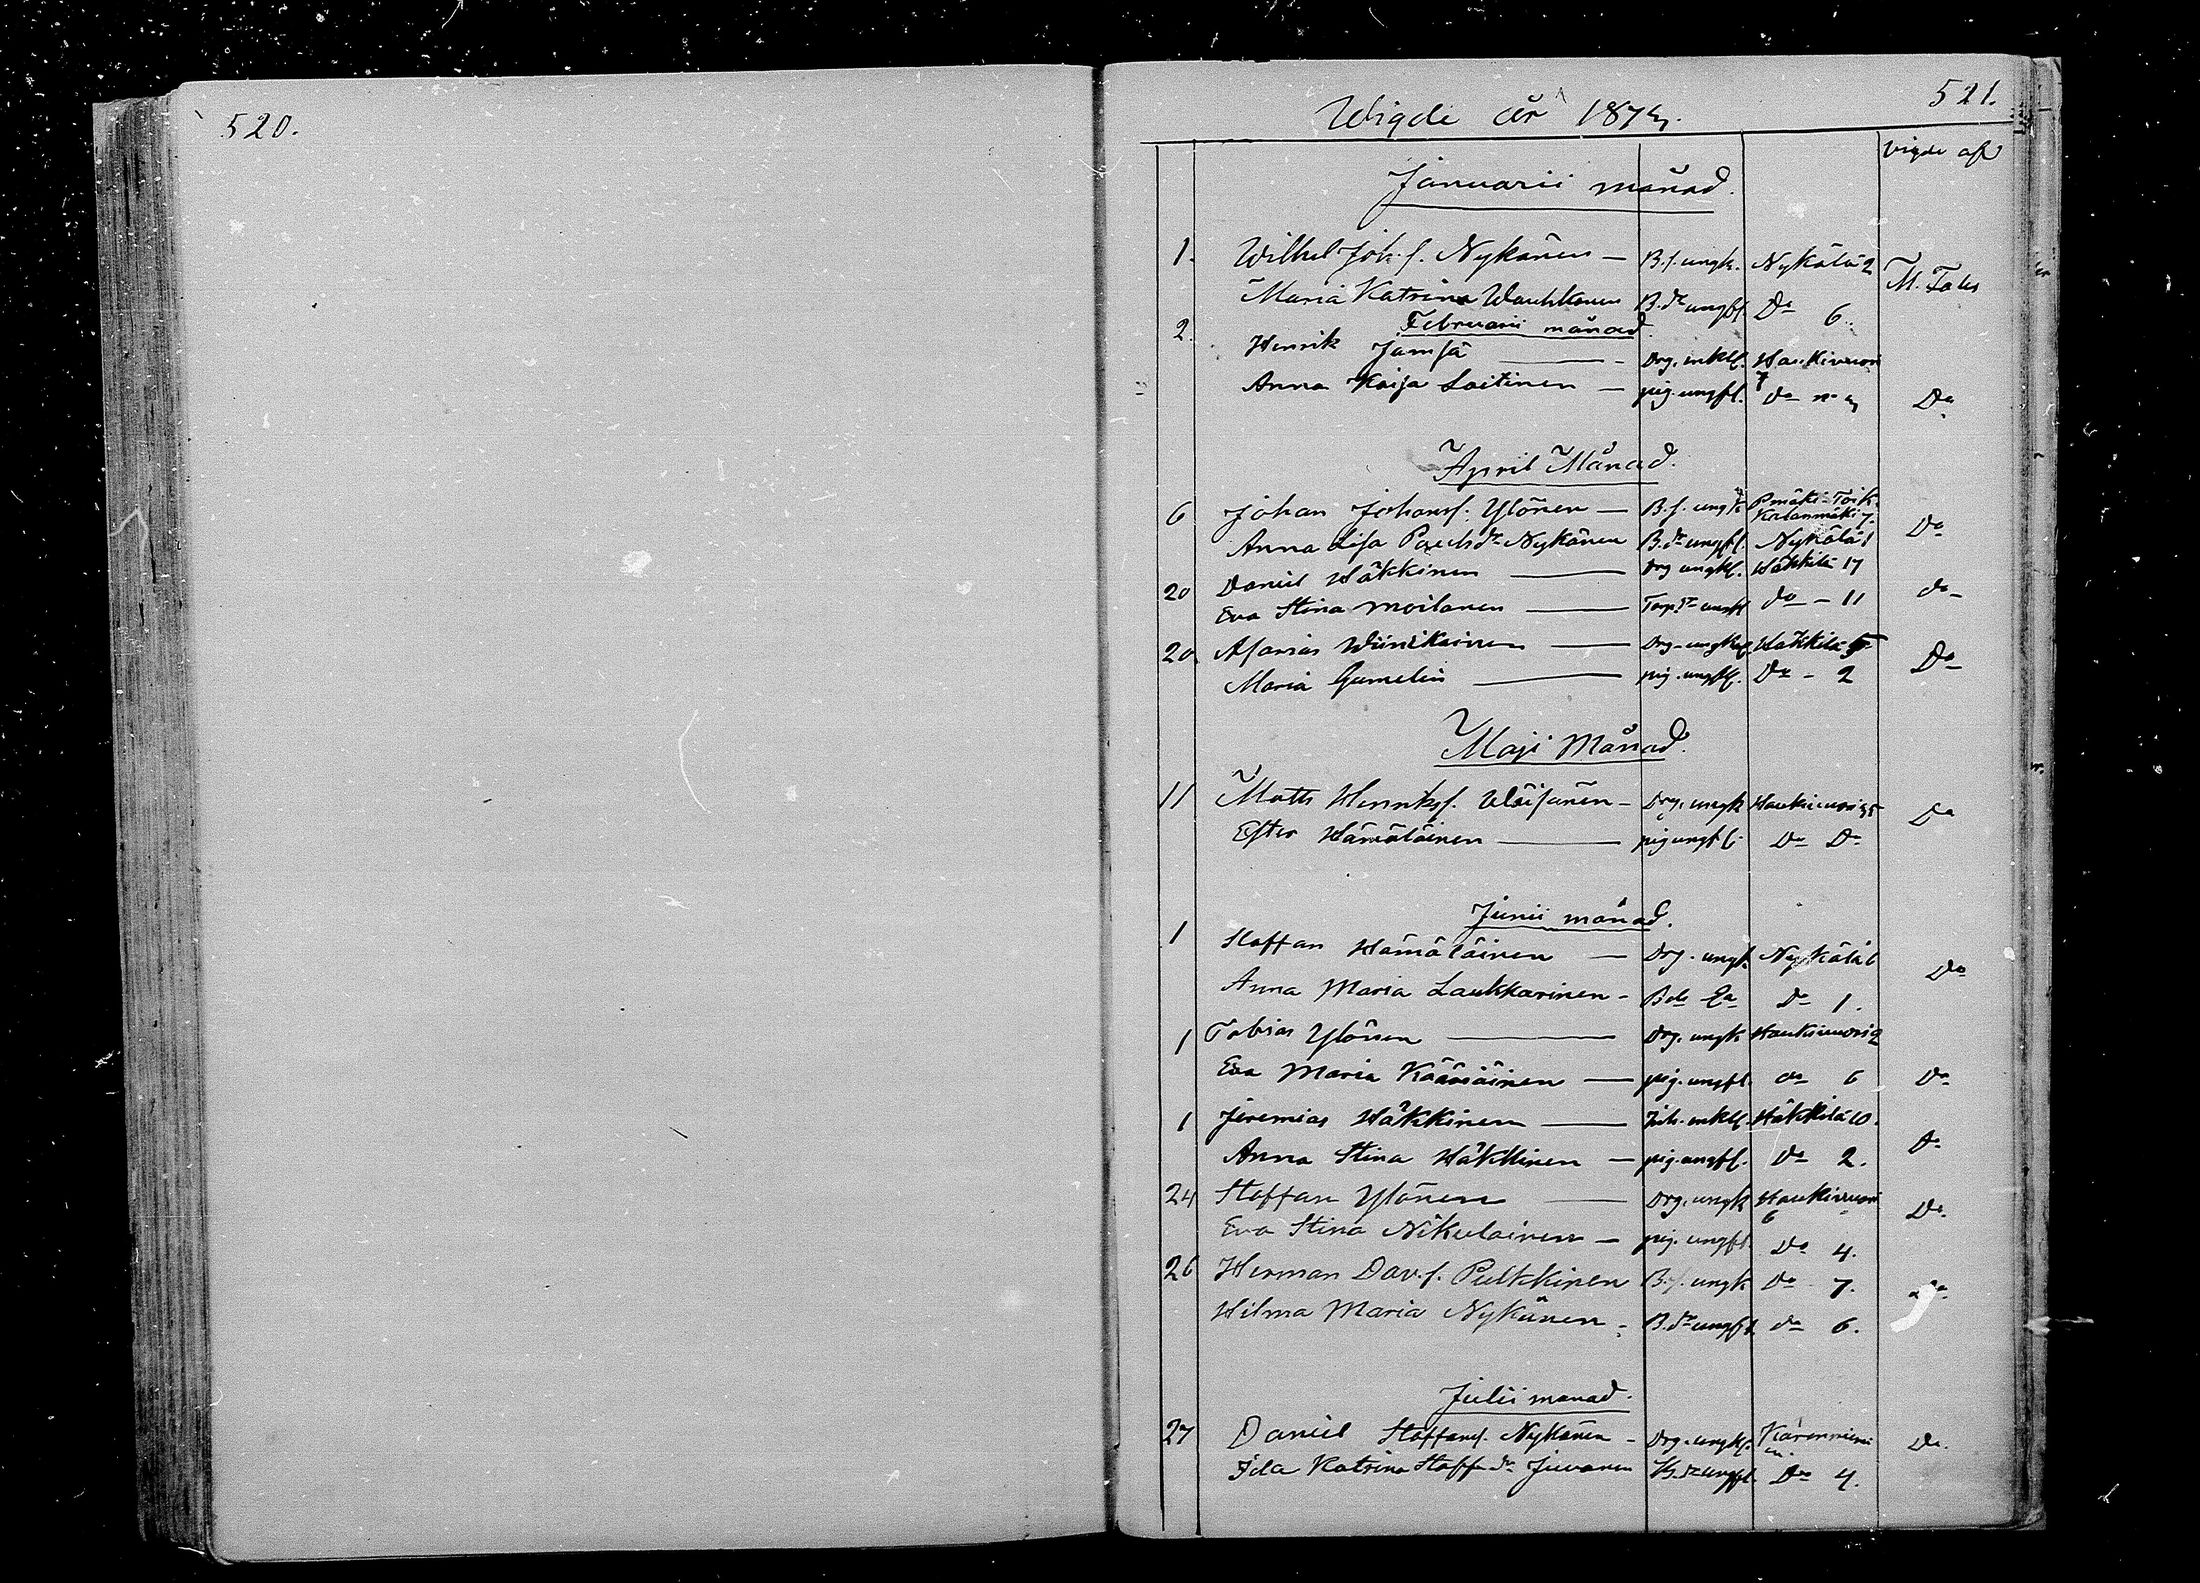 520.
521.
Wigde år 1874.
Vigde af
Januarii månad.
1. Wilhel Joh. s. Nykänen — B.s. ungk. Nykälä 2
Maria Katrina Wauhkonen B.dr ungfl. Do 6. M. Tales
Februarii månad
2. Henrik Jämsä — Drg. enkl. Haukivuori 7
Anna Kaisa Laitinen — pig. ungfl. do no Do
April Månad.
6 Johan Johans. Ylönen — B.s. ungk Pmäki-Toik. Kalanmäki 7.
Anna Lisa Paulsdr Nykänen B.dr ungfl. Nykälä 1 Do
20 Daniel Häkkinen — Drg ungkl. Häkkilä 17
Eva Stina Moilanen — Torp.dr ungfl do – 11 do
20. Asarias Wiinikainen — Drg. ungkl Häkkilä 5
Maria Gumelin — pig. ungfl. Do – 2 Do
Maji Månad.
11 Matts Henriks. Wäisänen – Drg. ungk Haukivuori 35
Ester Hämäläinen — pig ungfl. Do Do Do
Junii månad.
1 Staffan Hämäläinen — Drg. ungk. Nykälä 6
Anna Maria Laukkarinen – Bdr Do 1. Do
1 Tobias Ylönen — Drg. ungk Haukivuori 2
Eva Maria Kääriäinen — pig. ungfl. do 6 Do
1 Jeremias Häkkinen — Inh. enkl. Häkkilä 10.
Anna Stina Häkkinen — pig. ungfl. Do 2. Do
24 Staffan Ylönen — Drg. ungk Haukivuori 6
Eva Stina Nikulainen — pig. ungfl. Do 4. Do.
26 Herman Dav. s. Pulkkinen B.s. ungk Do 7.
Hilma Maria Nykänen – B.dr ungfl do 6. Do.
Julii månad.
27 Daniel Staffans. Nykänen – Drg. ungk. Kärenniemi
Ida Katrina Staffdr Juvonen ungfl. Do 4. Do.